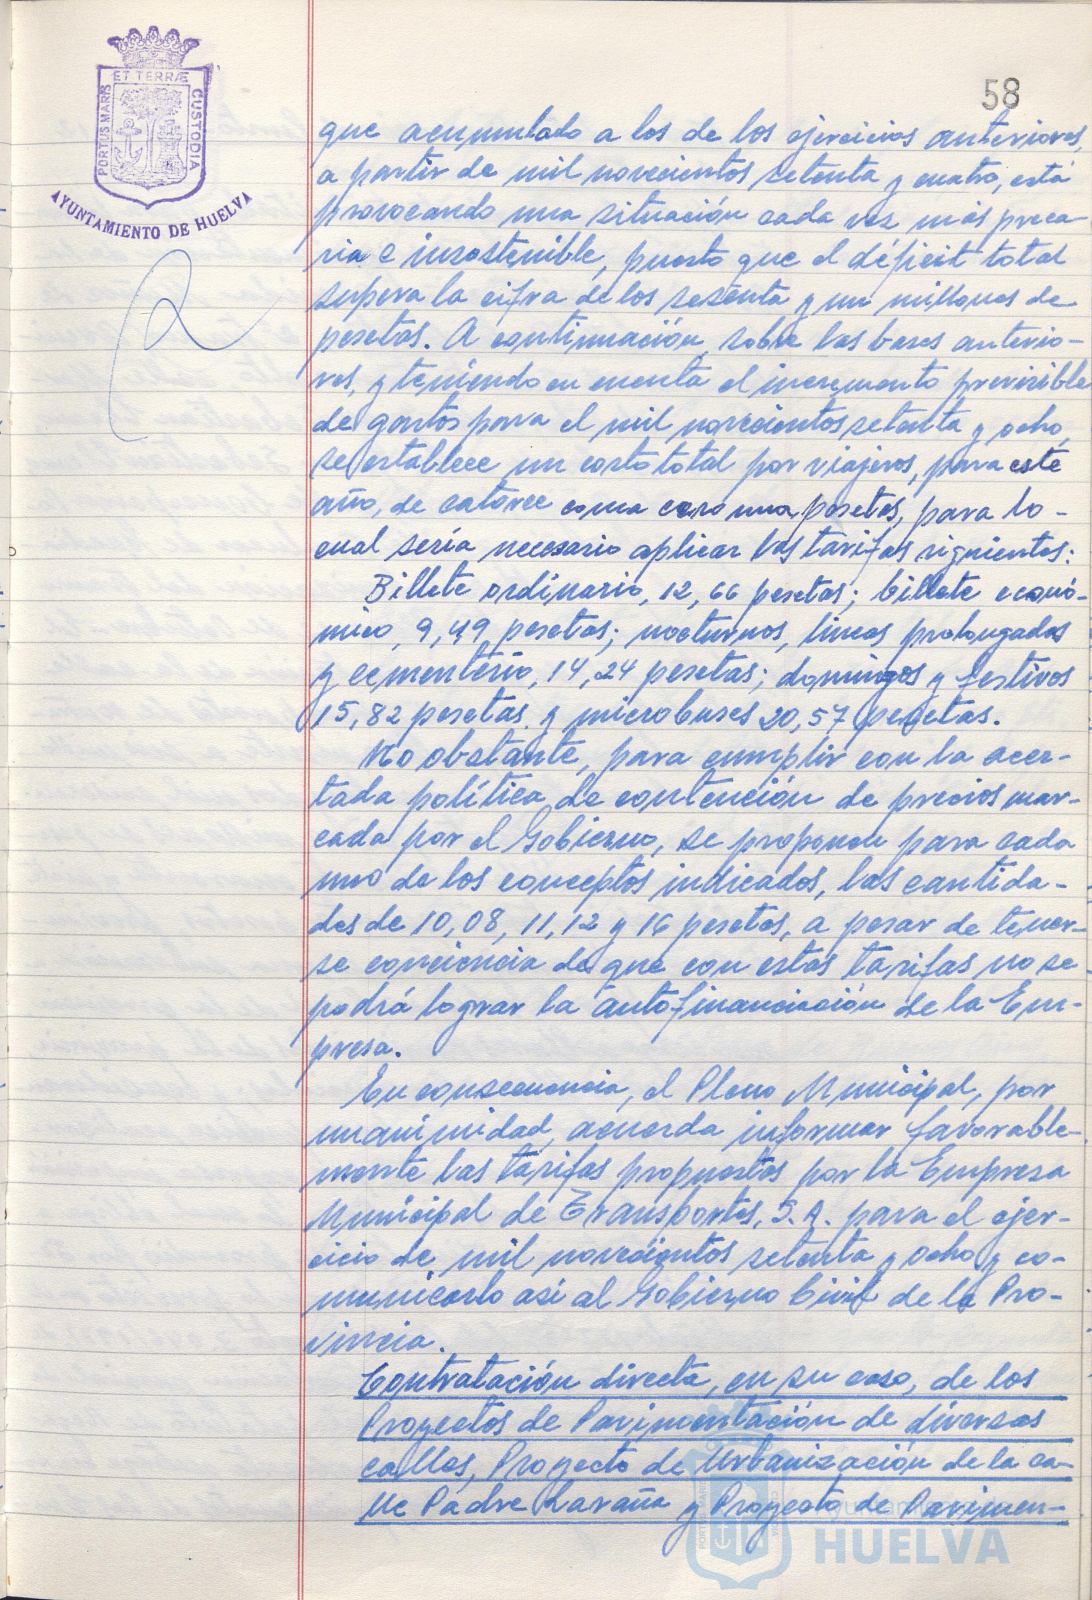 58
ET TERRÆ
PORTUS MARIS
CUSTODIA
AYUNTAMIENTO DE HUELVA
que acumulado a los de los ejercicios anteriores,
a partir de mil novecientos setenta y cuatro, está
provocando una situación cada vez más preca-
ria e insostenible, puesto que el déficit total
supera la cifra de los sesenta y un millones de
pesetas. A continuación, sobre las bases anterio-
res, y teniendo en cuenta el incremento previsible
de gastos para el mil novecientos setenta y ocho,
se establece un costo total por viajeros, para este
año, de catorce coma cero una pesetas, para lo-
cual sería necesario aplicar las tarifas siguientes:
Billete ordinario, 12,66 pesetas; billete econó-
mico, 9,49 pesetas; nocturnos, líneas prolongadas
y cementerio, 14,24 pesetas; domingos y festivos
15,82 pesetas y microbuses 20,57 pesetas.
No obstante, para cumplir con la acer-
tada política de contención de precios mar-
cada por el Gobierno, se propone para cada
uno de los conceptos indicados, las cantida-
des de 10, 08, 11, 12 y 16 pesetas, a pesar de tener-
se conciencia de que con estas tarifas no se
podrá lograr la autofinanciación de la Em-
presa.
En consecuencia, el Pleno Municipal, por
unanimidad, acuerda informar favorable-
mente las tarifas propuestas por la Empresa
Municipal de Transportes, S.A. para el ejer-
cicio de mil novecientos setenta y ocho y co-
municarlo así al Gobierno Civil de la Pro-
vincia.
Contratación directa, en su caso, de los
Proyectos de Pavimentación de diversas
calles, Proyecto de Urbanización de la ca-
lle Padre Laraña y Proyecto de Pavimen-
HUELVA